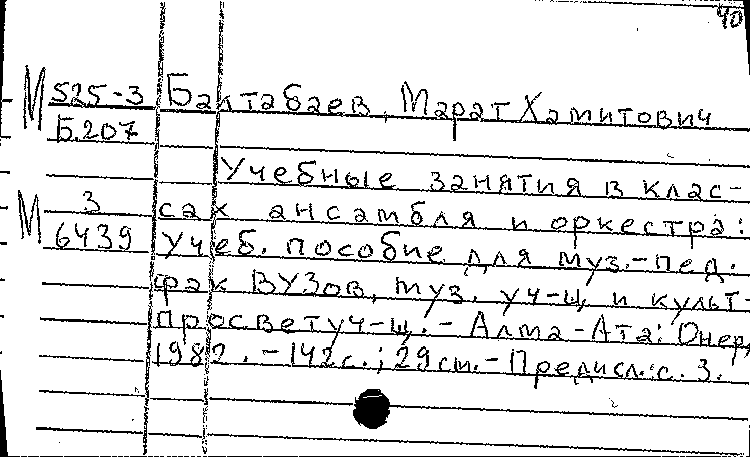 40
М 525-3 Балтабаев, Марат Хамитович
Б.207
Учебные занятия в клас-
М 3 сах ансамбля и оркестра:
6439 Учеб. пособие для муз.-пед.
фак ВУЗов, муз. уч-щ. и культ-
просветуч-щ. - Алма-Ата: Онер,
1982. - 142с.; 29см. - Предисл.: с. 3.